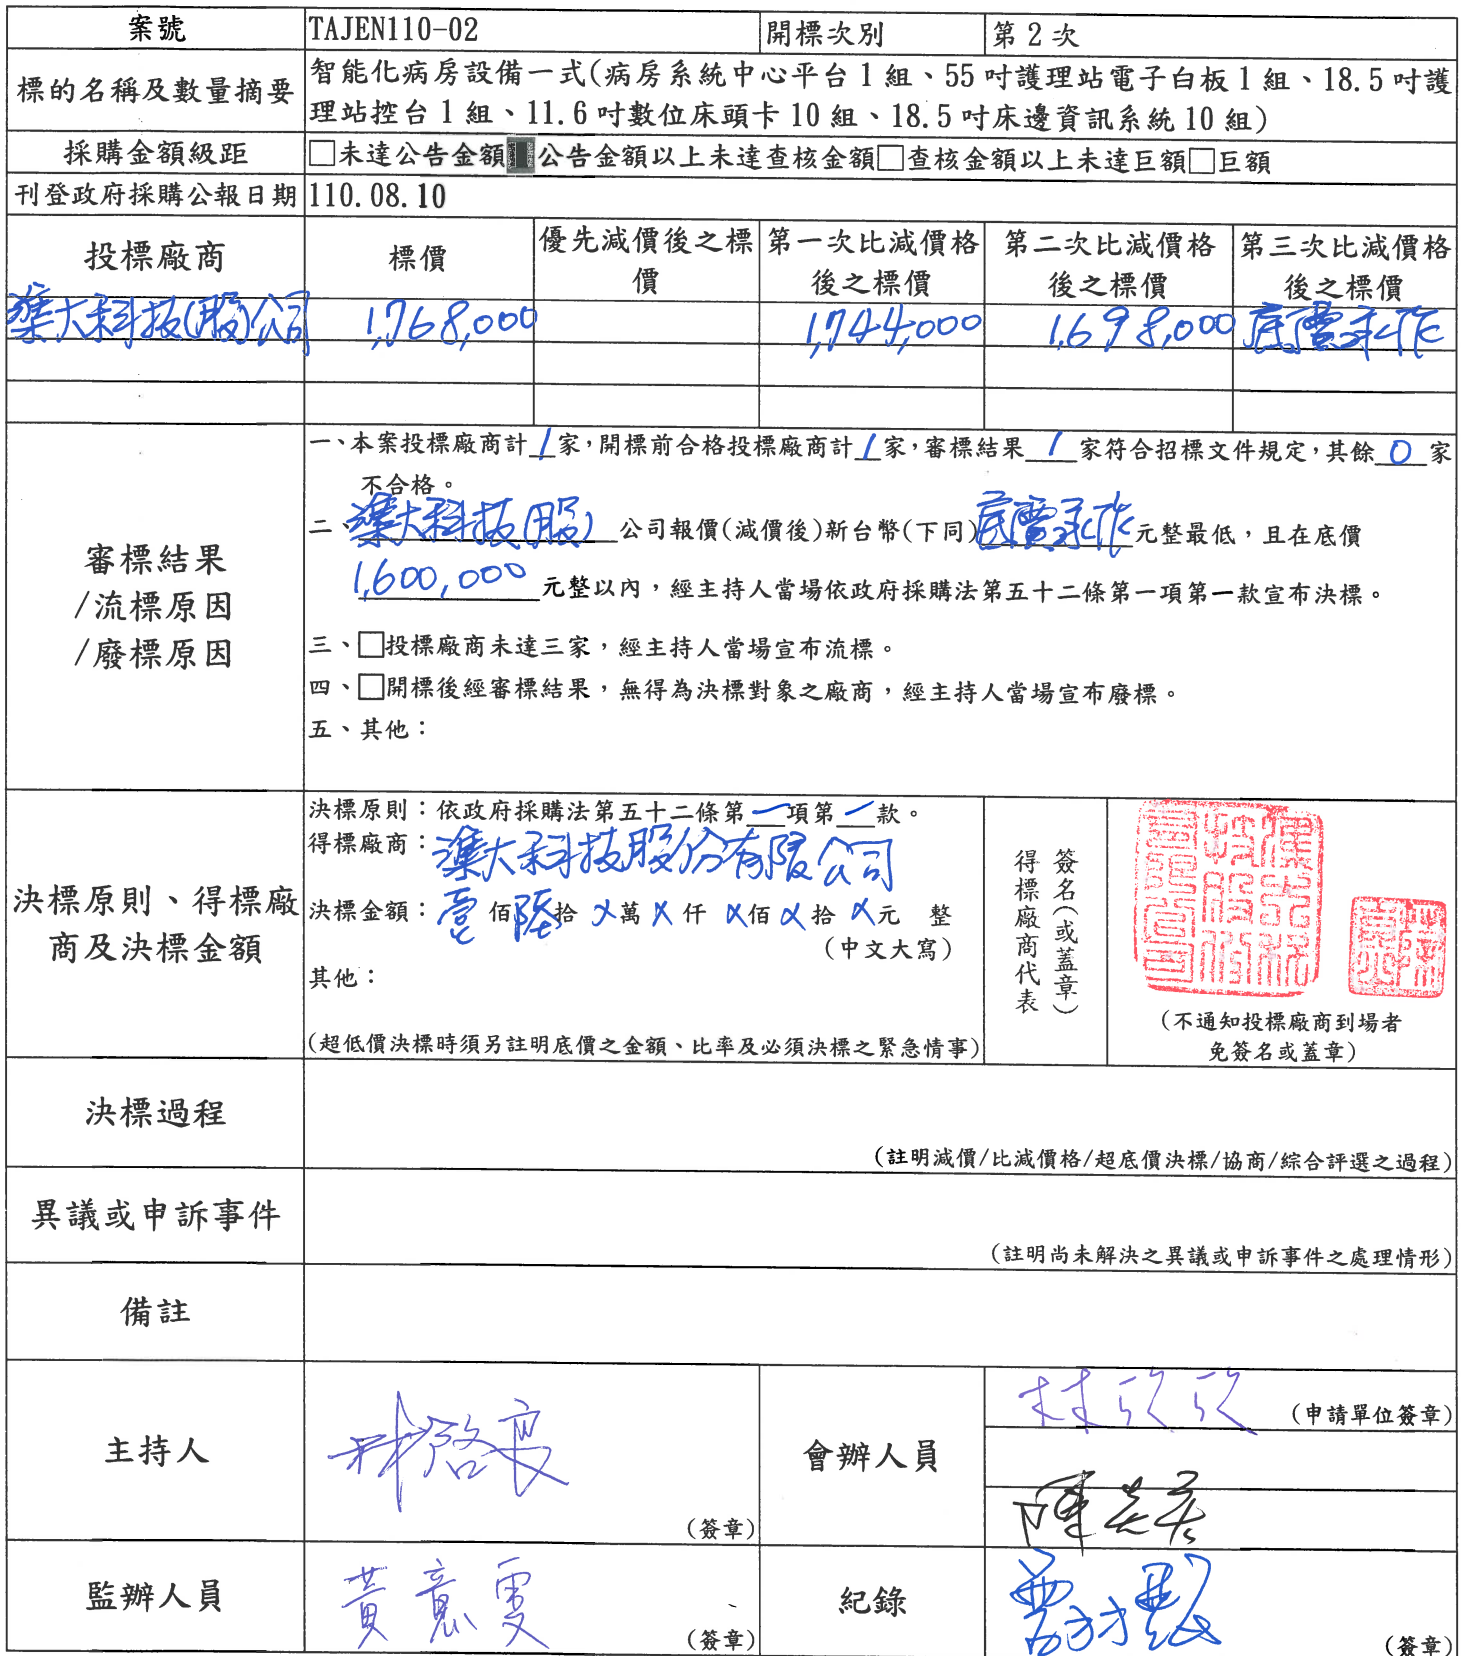 案號 TAJEN110-02 開標次別 第 2 次
標的名稱及數量摘要 智能化病房設備一式(病房系統中心平台 1 組、55 吋護理站電子白板 1 組、18.5 吋護
理站控台 1 組、11.6 吋數位床頭卡 10 組、18.5 吋床邊資訊系統 10 組)
採購金額級距 □未達公告金額■公告金額以上未達查核金額□查核金額以上未達巨額□巨額
刊登政府採購公報日期 110.08.10
投標廠商 標價 優先減價後之標價 第一次比減價格後之標價 第二次比減價格後之標價 第三次比減價格後之標價
大科技(股)公司 1,768,000 1,744,000 1,698,000 底價承作
審標結果
/流標原因
/廢標原因
一、本案投標廠商計 1 家,開標前合格投標廠商計 1 家,審標結果 1 家符合招標文件規定,其餘 0 家
不合格。
二、大科技(股) 公司報價(減價後)新台幣(下同) 底價承作 元整最低,且在底價
1,600,000 元整以內,經主持人當場依政府採購法第五十二條第一項第一款宣布決標。
三、□投標廠商未達三家,經主持人當場宣布流標。
四、□開標後經審標結果,無得為決標對象之廠商,經主持人當場宣布廢標。
五、其他:
決標原則、得標廠
商及決標金額
決標原則:依政府採購法第五十二條第一項第一款。
得標廠商:大科技股份有限公司
決標金額:壹佰陸拾 X萬 X仟 X佰 X拾 X元 整
(中文大寫)
其他:
(超低價決標時須另註明底價之金額、比率及必須決標之緊急情事)
得標廠商代表
簽名(或蓋章)
(不通知投標廠商到場者
免簽名或蓋章)
決標過程
(註明減價/比減價格/超底價決標/協商/綜合評選之過程)
異議或申訴事件
(註明尚未解決之異議或申訴事件之處理情形)
備註
主持人 林啓良 (簽章)
會辦人員 林欣欣 (申請單位簽章)
監辦人員 黃意雯 (簽章)
紀錄 (簽章)